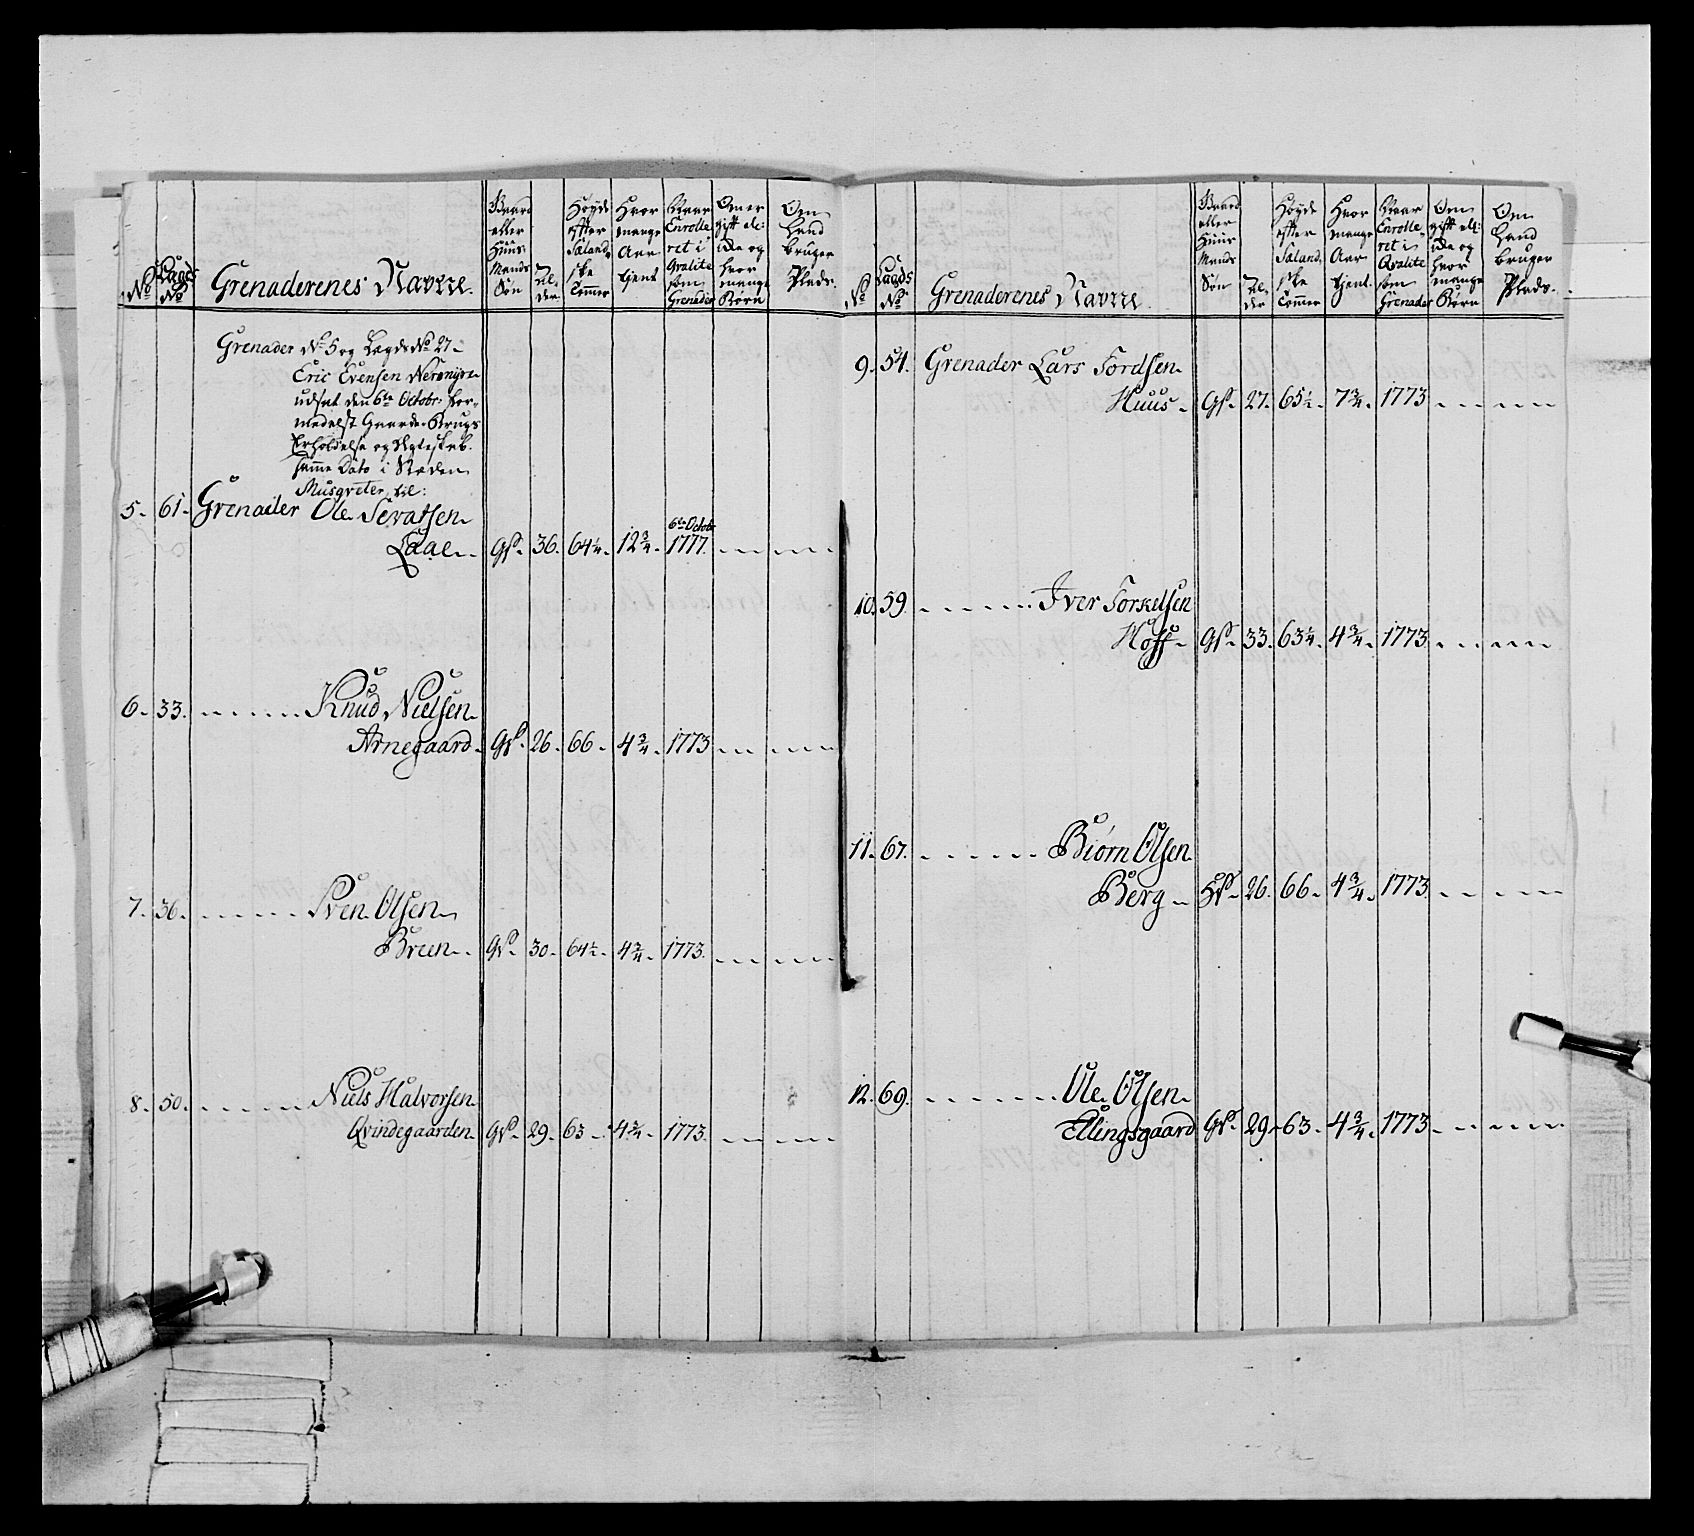 No
Lægds No
Grenaderenes Navne.
Gaard eller Huus Mands Søn
Al- der
Høyde efter Siælandske Tommer
Hvor mange Aar tient
Naar Enrolleret i Qvalite som Grenader
Om er gift eller ikke og hvor mange Børn
Om hand bruger Plads.
Grenader No 5 og Lægds No 27-
Eric Evensen
udsat den 6te Octobr: for-
medelst Gaards-Brugs
Erholdelse og Ægteskab.
samme Dato i Steden
Musqveter til:
5. 61. Grenader Ole Sevatsen
6te Octobr
Laae. GS. 36. 64¼. 12¾. 1777.
6. 33. Knud Nielsen
Arnegaard. GS. 26. 66. 4¾. 1773
7. 36. Sven Olsen
Breen. GS. 30. 64½. 4¾. 1773.
8. 50. Niels Halvorsen
Qvindegaarden. GS. 29. 63. 4¾. 1773.
No
Lægds No
Grenaderenes Navne.
Gaard eller Huus Mands Søn
Al- der
Høyde efter Siælandske Tommer
Hvor mange Aar tient
Naar Enrolleret i Qvalite som Grenader
Om gift eller ikke og hvor mange Børn
Om Hand bruger Plads.
9. 54. Grenader Lars Tordsen
Huus. GS. 27. 65½. 7¾. 1773
10. 59. Iver Torkelsen
Hoff. GS. 33. 63¼. 4¾. 1773
11. 67. Biørn Olsen
Berg. HS. 26. 66. 4¾. 1773.
12. 69. Ole Olsen
Ellingsgaard GS. 29. 63. 4¾. 1773.